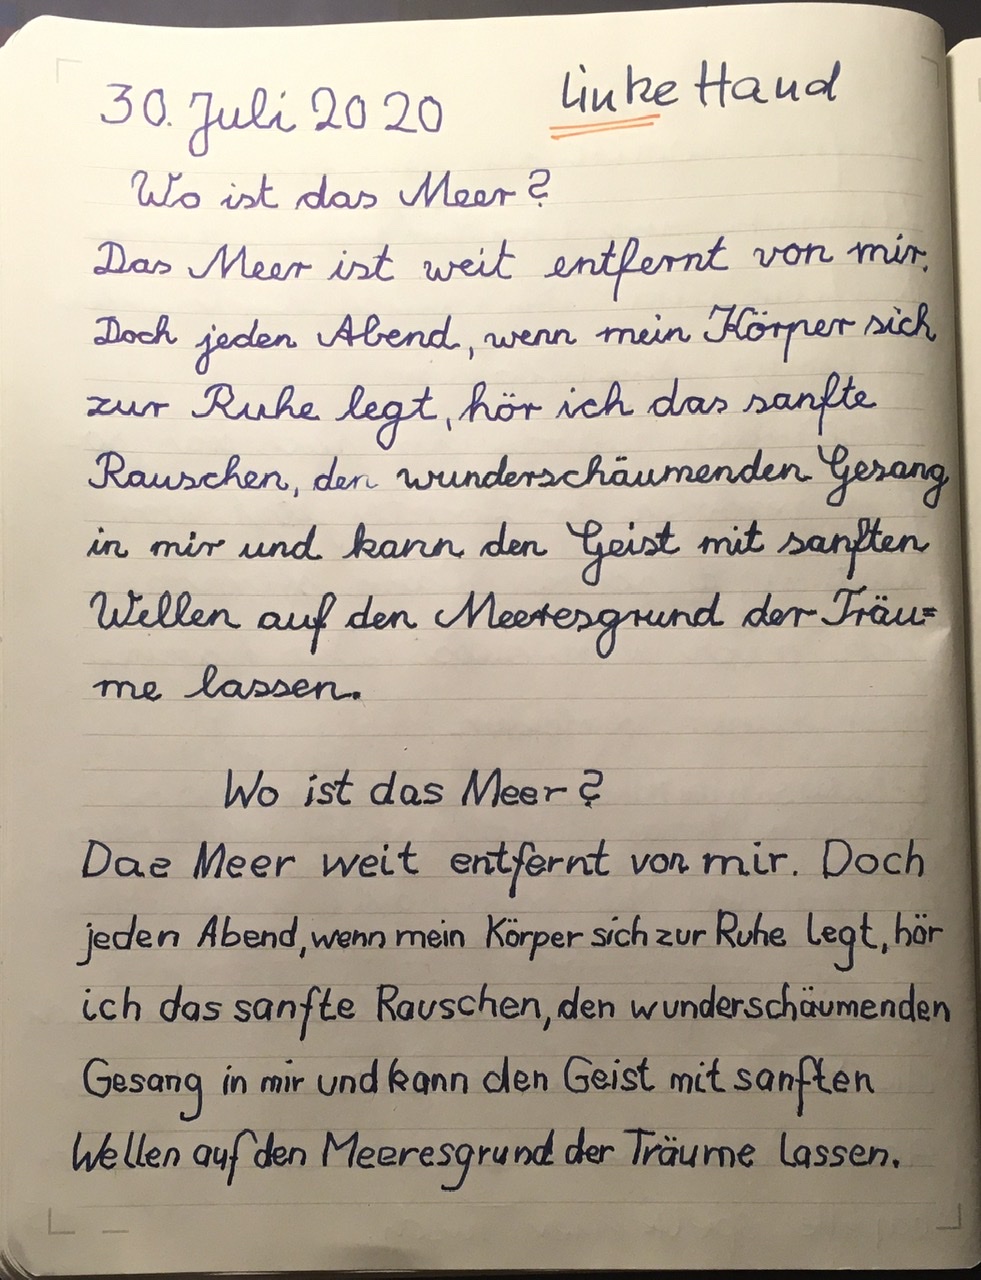 30. Juli 2020 Linke Hand
Wo ist das Meer?
Das Meer ist weit entfernt von mir.
Doch jeden Abend, wenn mein Körper sich
zur Ruhe legt, hör ich das sanfte
Rauschen, den wunderschäumenden Gesang
in mir und kann den Geist mit sanften
Wellen auf den Meeresgrund der Träu=
me lassen.
Wo ist das Meer?
Das Meer weit entfernt von mir. Doch
jeden Abend, wenn mein Körper sich zur Ruhe legt, hör
ich das sanfte Rauschen, den wunderschäumenden
Gesang in mir und kann den Geist mit sanften
Wellen auf den Meeresgrund der Träume lassen.